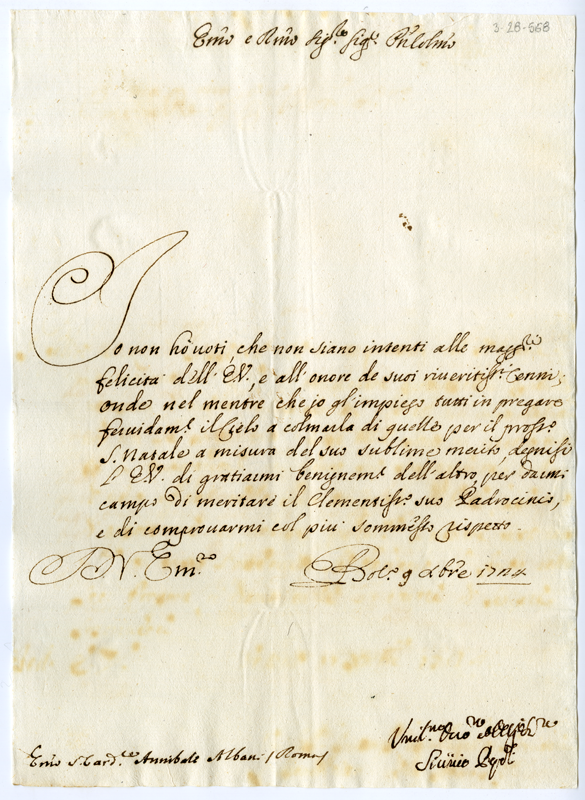 3-28-568
Em̃o e Rm̃o Sig.re Sig.r P̃rõn Colmo
Io non hò voti, che non siano intenti alle magg.ri
felicità dell' E.V., e all'onore de suoi riveritiss.i Cenni;
onde nel mentre che jo gl'impiego tutti in pregare
fervidam.e il Cielo a colmarla di quelle per il pross.o
S. Natale a misura del suo sublime merito, degnisi
l' E.V. di gratiarmi benignem.e dell'altro, per darmi
campo di meritare il Clementiss.o suo Padrocinio,
e di comprovarmi col più sommesso rispetto.
D. V. Em.za
Bol.a 9 Xbre
Em̃o S.r Card.le Annibale Albani / Roma /